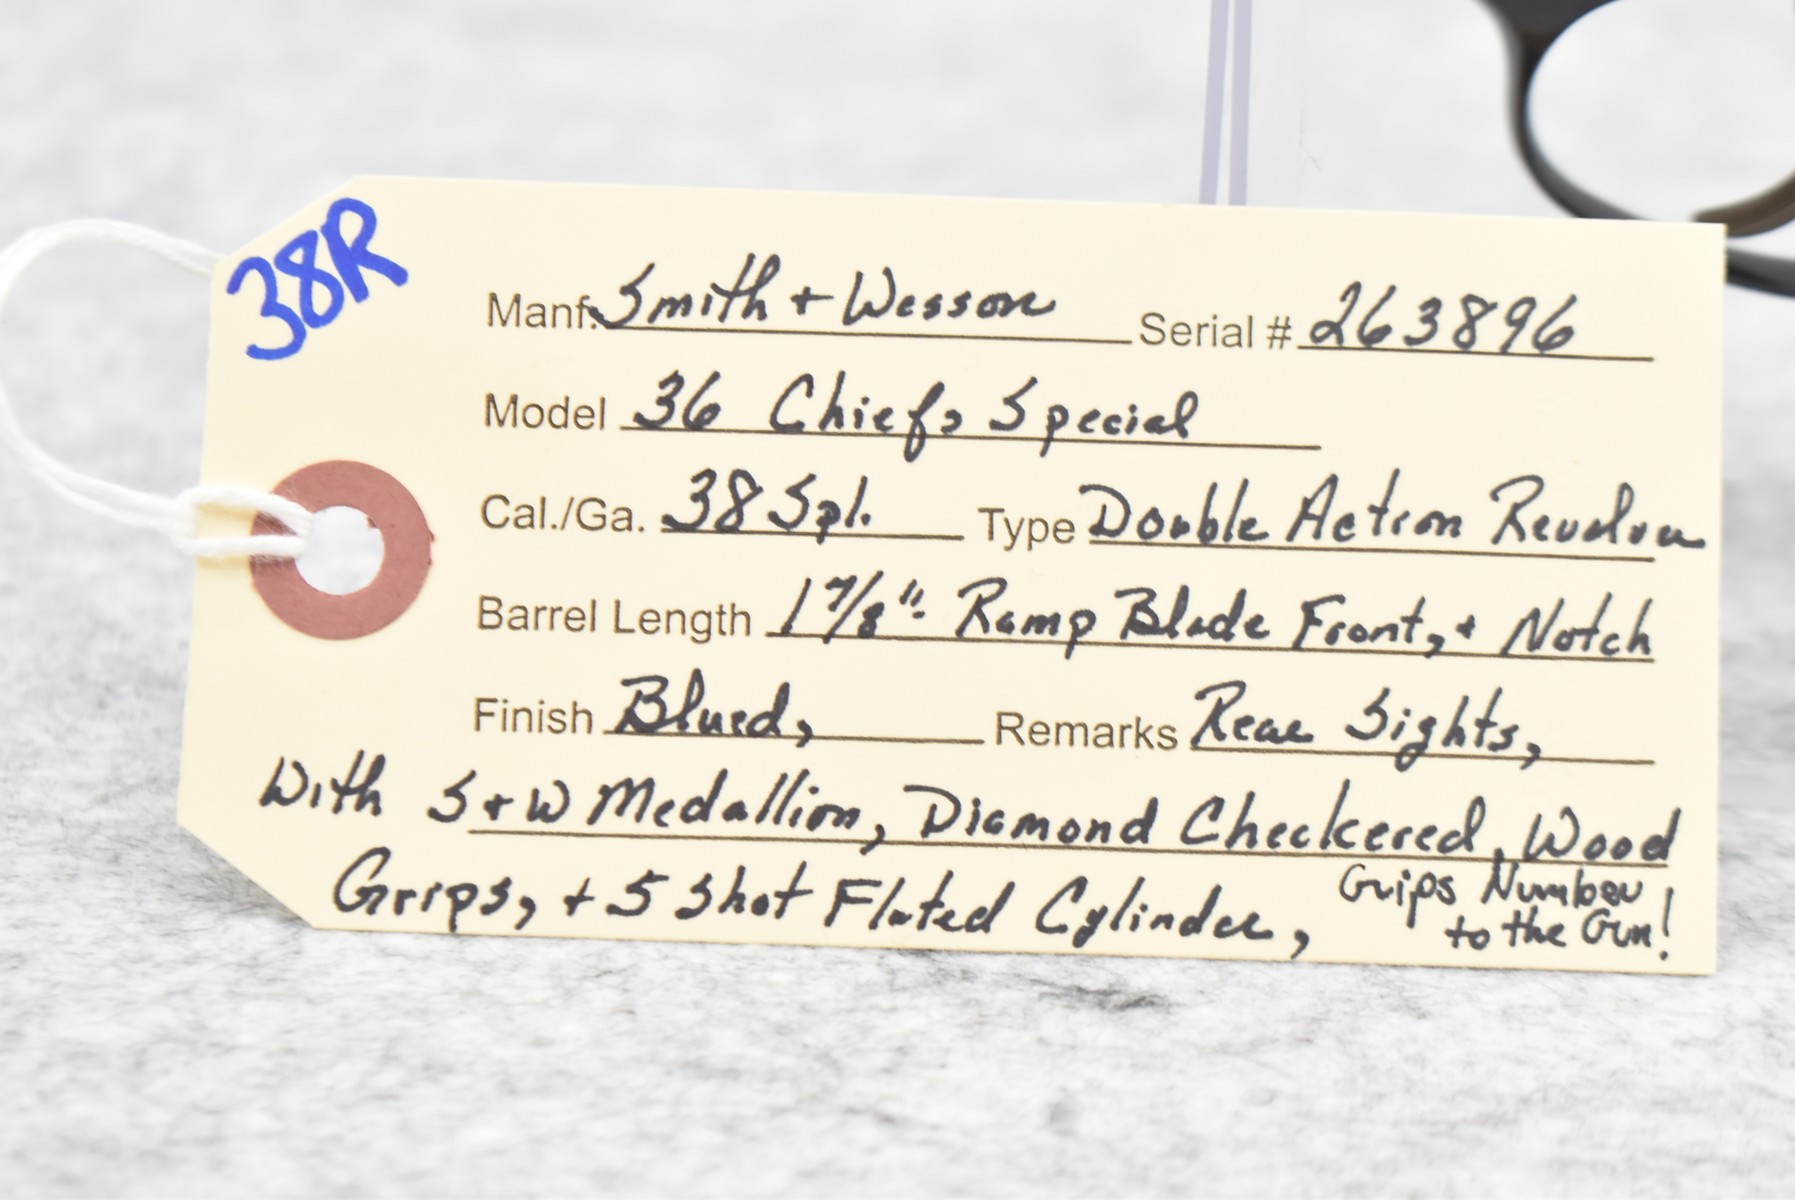 38R
Manf. Smith + Wesson Serial # 263896
Model 36 Chiefs Special
Cal./Ga. 38 Spl. Type Double Action Revolver
Barrel Length 1 7/8" Ramp Blade Front, + Notch
Finish Blued, Remarks Rear Sights,
With S+W Medallion, Diamond Checkered, Wood
Grips, + 5 Shot Fluted Cylinder, Grips Number
to the Gun!